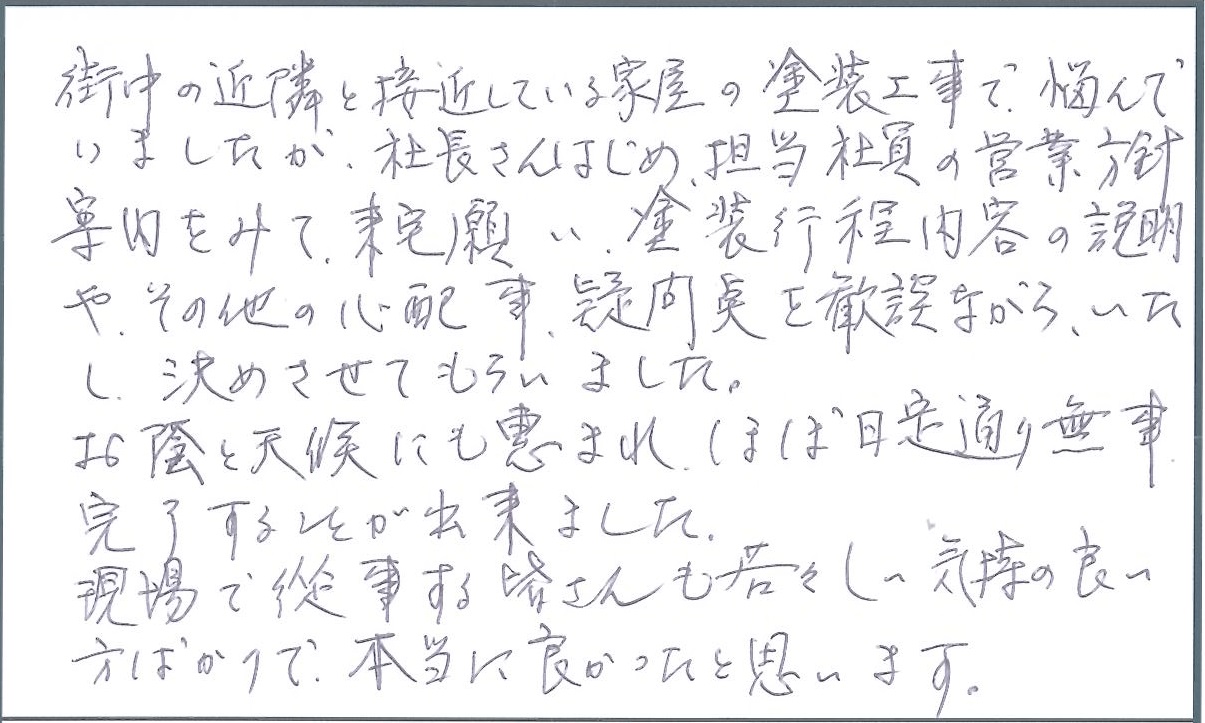 街中の近隣と接近している家屋の塗装工事で、悩んで
いましたが、社長さんはじめ、担当社員の営業方針
案内をみて、来宅願い、塗装行程内容の説明
や、その他の心配事、疑問点を歓誤ながら、いた
し、決めさせてもらいました。
お陰と天候にも恵まれ、ほぼ日定通り無事
完了することが出来ました。
現場で従事する皆さんも若々しい気持の良い
方ばかりで、本当に良かったと思います。